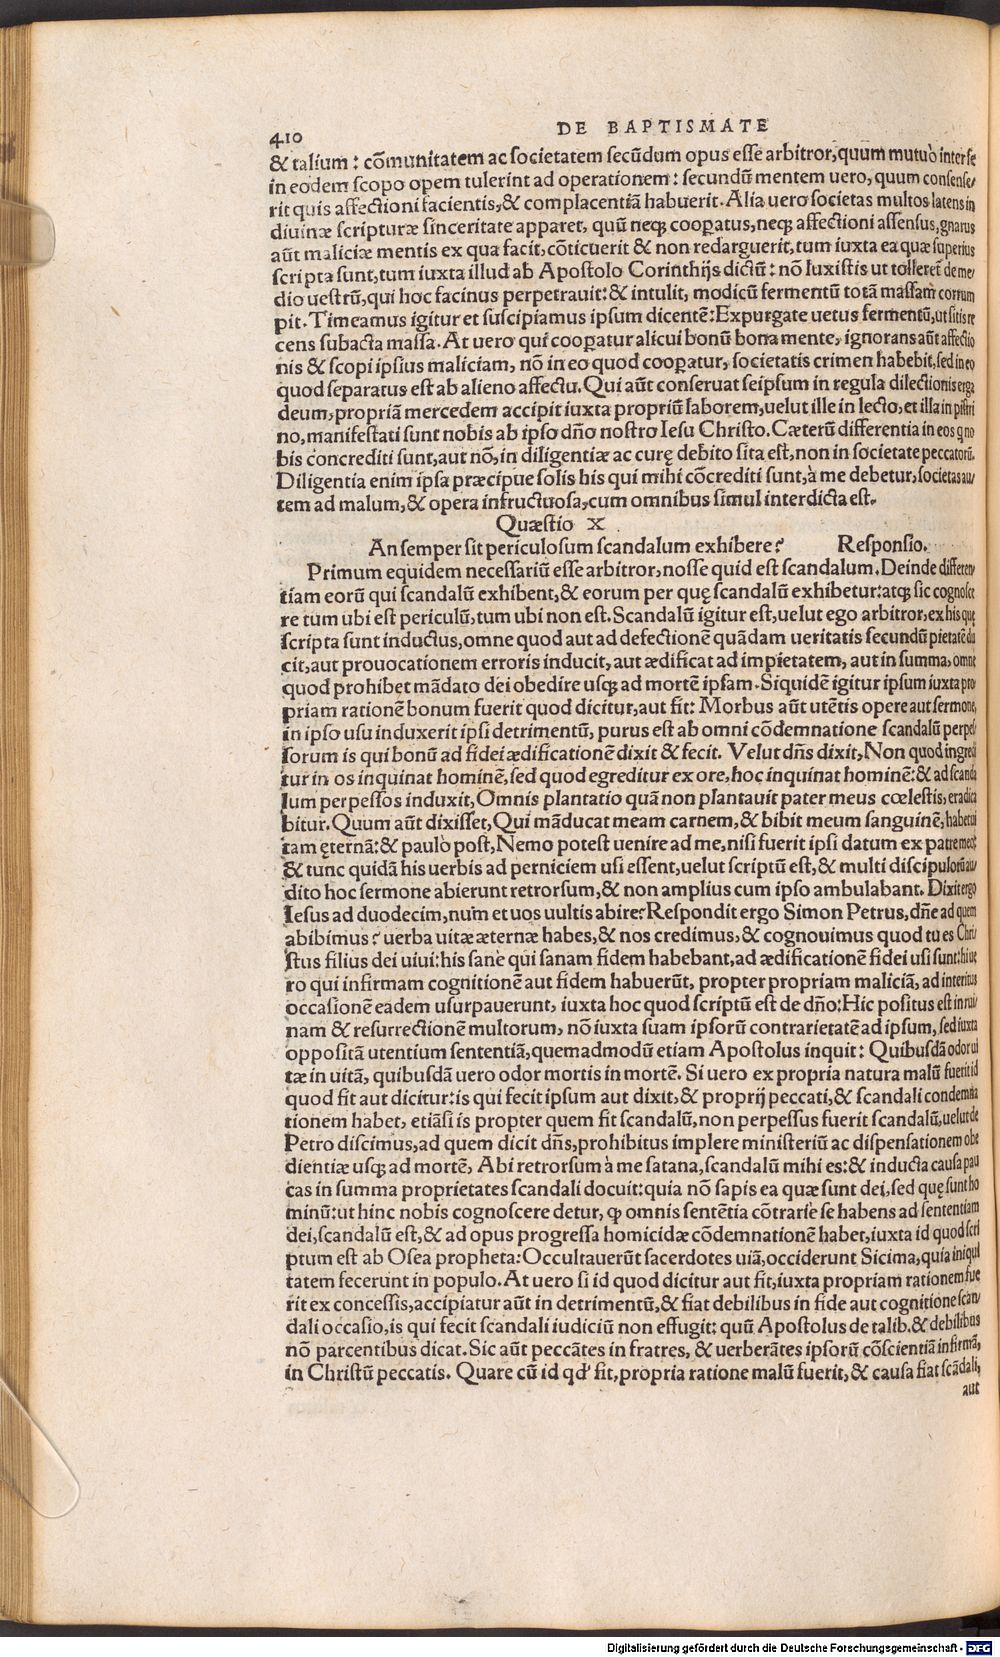 410
DE BAPTISMATE
& talium: cōmunitatem ac societatem secūdum opus esse arbitror, quum mutuò inter se
in eodem scopo opem tulerint ad operationem: secundū mentem uero, quum consense/
rit quis affectioni facientis, & complacentiā habuerit. Alia uero societas multos latens in
diuinæ scripturæ sinceritate apparet, quū neqꝫ cooꝑatus, neqꝫ affectioni assensus, gnarus
aūt maliciæ mentis ex qua facit, cōticuerit & non redarguerit, tum iuxta ea quæ superius
scripta sunt, tum iuxta illud ab Apostolo Corinthijs dictū: nō luxistis ut tolleret̃ de me/
dio uestrū, qui hoc facinus perpetrauit: & intulit, modicū fermentū totā massam corrum
pit. Timeamus igitur et suscipiamus ipsum dicentē: Expurgate uetus fermentū, ut sitis re
cens subacta massa. At uero qui cooꝑatur alicui bonū bona mente, ignorans aūt affectio
nis & scopi ipsius maliciam, nō in eo quod cooꝑatur, societatis crimen habebit, sed in eo
quod separatus est ab alieno affectu. Qui aūt conseruat seipsum in regula dilectionis erga
deum, propriā mercedem accipit iuxta propriū laborem, uelut ille in lecto, et illa in pistri
no, manifestati sunt nobis ab ipso dño nostro Iesu Christo. Cæterū differentia in eos q no
bis concrediti sunt, aut nō, in diligentiæ ac curę debito sita est, non in societate peccatorū.
Diligentia enim ipsa præcipue solis his qui mihi cōcrediti sunt, à me debetur, societas au/
tem ad malum, & opera infructuosa, cum omnibus simul interdicta est.
Quæstio X
An semper sit periculosum scandalum exhibere? Responsio.
Primum equidem necessariū esse arbitror, nosse quid est scandalum. Deinde differen/
tiam eorū qui scandalū exhibent, & eorum per quę scandalū exhibetur: atqꝫ sic cognosce
re tum ubi est periculū, tum ubi non est. Scandalū igitur est, uelut ego arbitror, ex his quę
scripta sunt inductus, omne quod aut ad defectionē quādam ueritatis secundū pietatē du
cit, aut prouocationem erroris inducit, aut ædificat ad impietatem, aut in summa, omne
quod prohibet mādato dei obedire usqꝫ ad mortē ipsam. Siquidē igitur ipsum iuxta pro
priam rationē bonum fuerit quod dicitur, aut fit: Morbus aūt utētis opere aut sermone,
in ipso usu induxerit ipsi detrimentū, purus est ab omni cōdemnatione scandalū perpes/
sorum is qui bonū ad fidei ædificationē dixit & fecit. Velut dñs dixit, Non quod ingredi
tur in os inquinat hominē, sed quod egreditur ex ore, hoc inquinat hominē: & ad scanda
lum perpessos induxit, Omnis plantatio quā non plantauit pater meus cœlestis, eradica
bitur. Quum aūt dixisset, Qui māducat meam carnem, & bibit meum sanguinē, habet ui
tam ęternā: & paulò post, Nemo potest uenire ad me, nisi fuerit ipsi datum ex patre meo:
& tunc quidā his uerbis ad perniciem usi essent, uelut scriptū est, & multi discipulorū au/
dito hoc sermone abierunt retrorsum, & non amplius cum ipso ambulabant. Dixit ergo
Iesus ad duodecim, num et uos uultis abire? Respondit ergo Simon Petrus, dñe ad quem
abibimus? uerba uitæ æternæ habes, & nos credimus, & cognouimus quod tu es Chri/
stus filius dei uiui: his sane qui sanam fidem habebant, ad ædificationē fidei usi sunt: hi ue
ro qui infirmam cognitionē aut fidem habuerūt, propter propriam maliciā, ad interitus
occasionē eadem usurpauerunt, iuxta hoc quod scriptū est de dño: Hic positus est in rui/
nam & resurrectionē multorum, nō iuxta suam ipsorū contrarietatē ad ipsum, sed iuxta
oppositā utentium sententiā, quemadmodū etiam Apostolus inquit: Quibusdā odor ui
tæ in uitā, quibusdā uero odor mortis in mortē. Si uero ex propria natura malū fuerit id
quod fit aut dicitur: is qui fecit ipsum aut dixit, & proprij peccati, & scandali condemna
tionem habet, etiāsi is propter quem fit scandalū, non perpessus fuerit scandalū, uelut de
Petro discimus, ad quem dicit dñs, prohibitus implere ministeriū ac dispensationem obe
dientiæ usqꝫ ad mortē, Abi retrorsum à me satana, scandalū mihi es: & inducta causa pau
cas in summa proprietates scandali docuit: quia nō sapis ea quæ sunt dei, sed quę sunt ho
minū: ut hinc nobis cognoscere detur, ꝙ omnis sentētia cōtrarie se habens ad sententiam
dei, scandalū est, & ad opus progressa homicidæ cōdemnationē habet, iuxta id quod scri
ptum est ab Osea propheta: Occultauerūt sacerdotes uiā, occiderunt Sicima, quia iniqui
tatem fecerunt in populo. At uero si id quod dicitur aut fit, iuxta propriam rationem fue
rit ex concessis, accipiatur aūt in detrimentū, & fiat debilibus in fide aut cognitione scan/
dali occasio, is qui fecit scandali iudiciū non effugit: quū Apostolus de talib. & debilibus
nō parcentibus dicat. Sic aūt peccātes in fratres, & uerberātes ipsorū cōscientiā infirmā,
in Christū peccatis. Quare cū id qđ fit, propria ratione malū fuerit, & causa fiat scādali,
aut
Digitalisierung gefördert durch die Deutsche Forschungsgemeinschaft - DFG